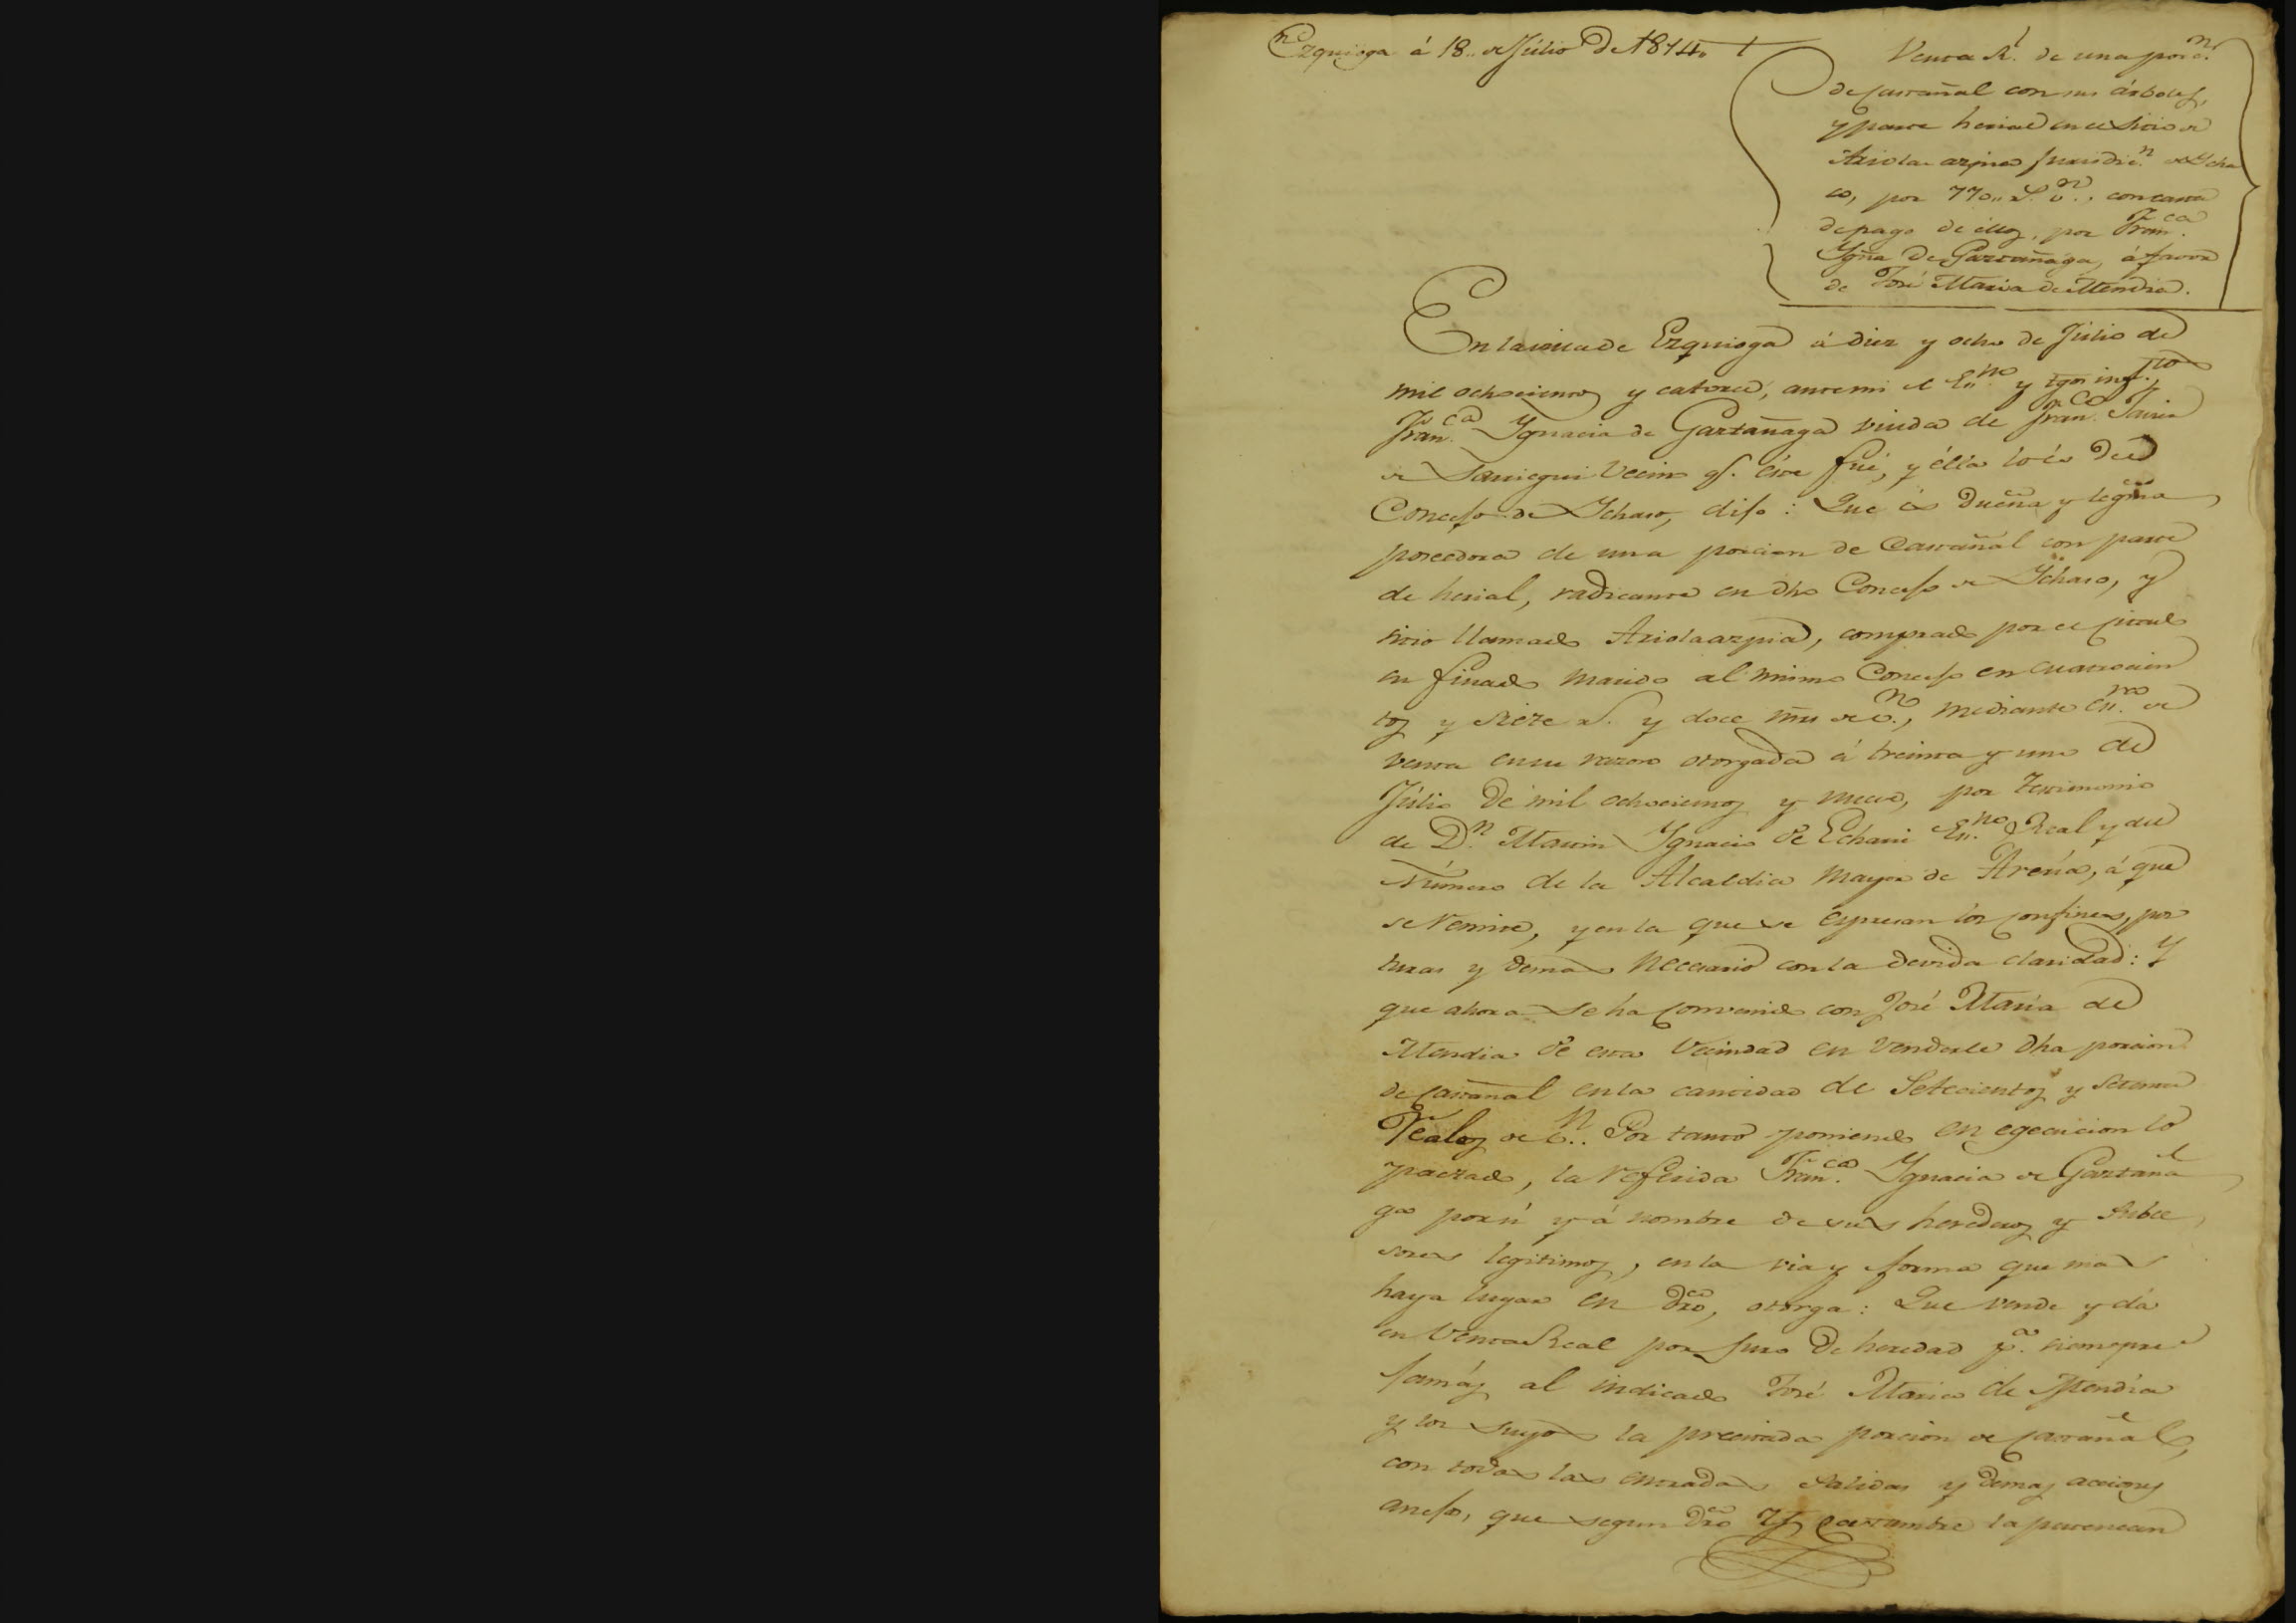 Ezquioga á 18,, de Júlio De 1814. +
Venta Rl. de una porcn.
de castañal con sus árboles,
y parte herial en el sitio de
Ariola azpia Jurisdicn. de Ycha
so, por 770,, rs. vn., con carta
de pago de ellos, por Franca.
Ygña De Gaztañaga, á favor
de José Maria de Mendia.
En la villa de Ezquioga á diez y ocho de Júlio de
mil ochocientos y catorce, ante mi el Esno. y tgos infrtos
Franca. Ygnacia de Gaztañaga viuda de Franco. Javier
de Vecino qe. éste fué, y élla lo és del
Concejo de Ychaso, dijo: Que és Dueña y legma
poseedora de una porcion de Castañal con parte
de herial, radicante en dho Concejo de Ychaso, y
sitio llamado Ariolaazpia, comprado por el citado
su finado marido al mismo Concejo en cuatrocien
tos y siete rs. y doce mrs de vn., mediante Esra. de
venta en su razon otorgada á treinta y uno de
Júlio de mil ochocientos y nueve, por testimonio
de Dn. Martin Ygnacio de Echave Esno. Real y del
Número de la Alcaldia mayor de Areria, á que
se remite, y en la que se expresan los confines, pos
turas y demas necesario con la devida claridad: Y
que ahora se ha convenido con José Maria de
Mendia de esta Vecindad en venderle dha porcion
de castañal en la cantidad de Setecientos y setenta
Reales de vn.. Por tanto poniendo en egecucion lo
pactado, la referida Franca. Ygnacia de Gaztaña
ga por sí y á nombre de sus herederos y subce
sores legitimos, en la via y forma que mas
haya lugar en dro, otorga: Que vende y dá
en Venta Real por Juro De heredad pa. siempre
jamás al indicado José Maria de Mendia
y los suyos la precitada porcion de castañal,
con todas las entradas salidas y demas acciones
anejas, que segun Dro y costumbre la pertenecen